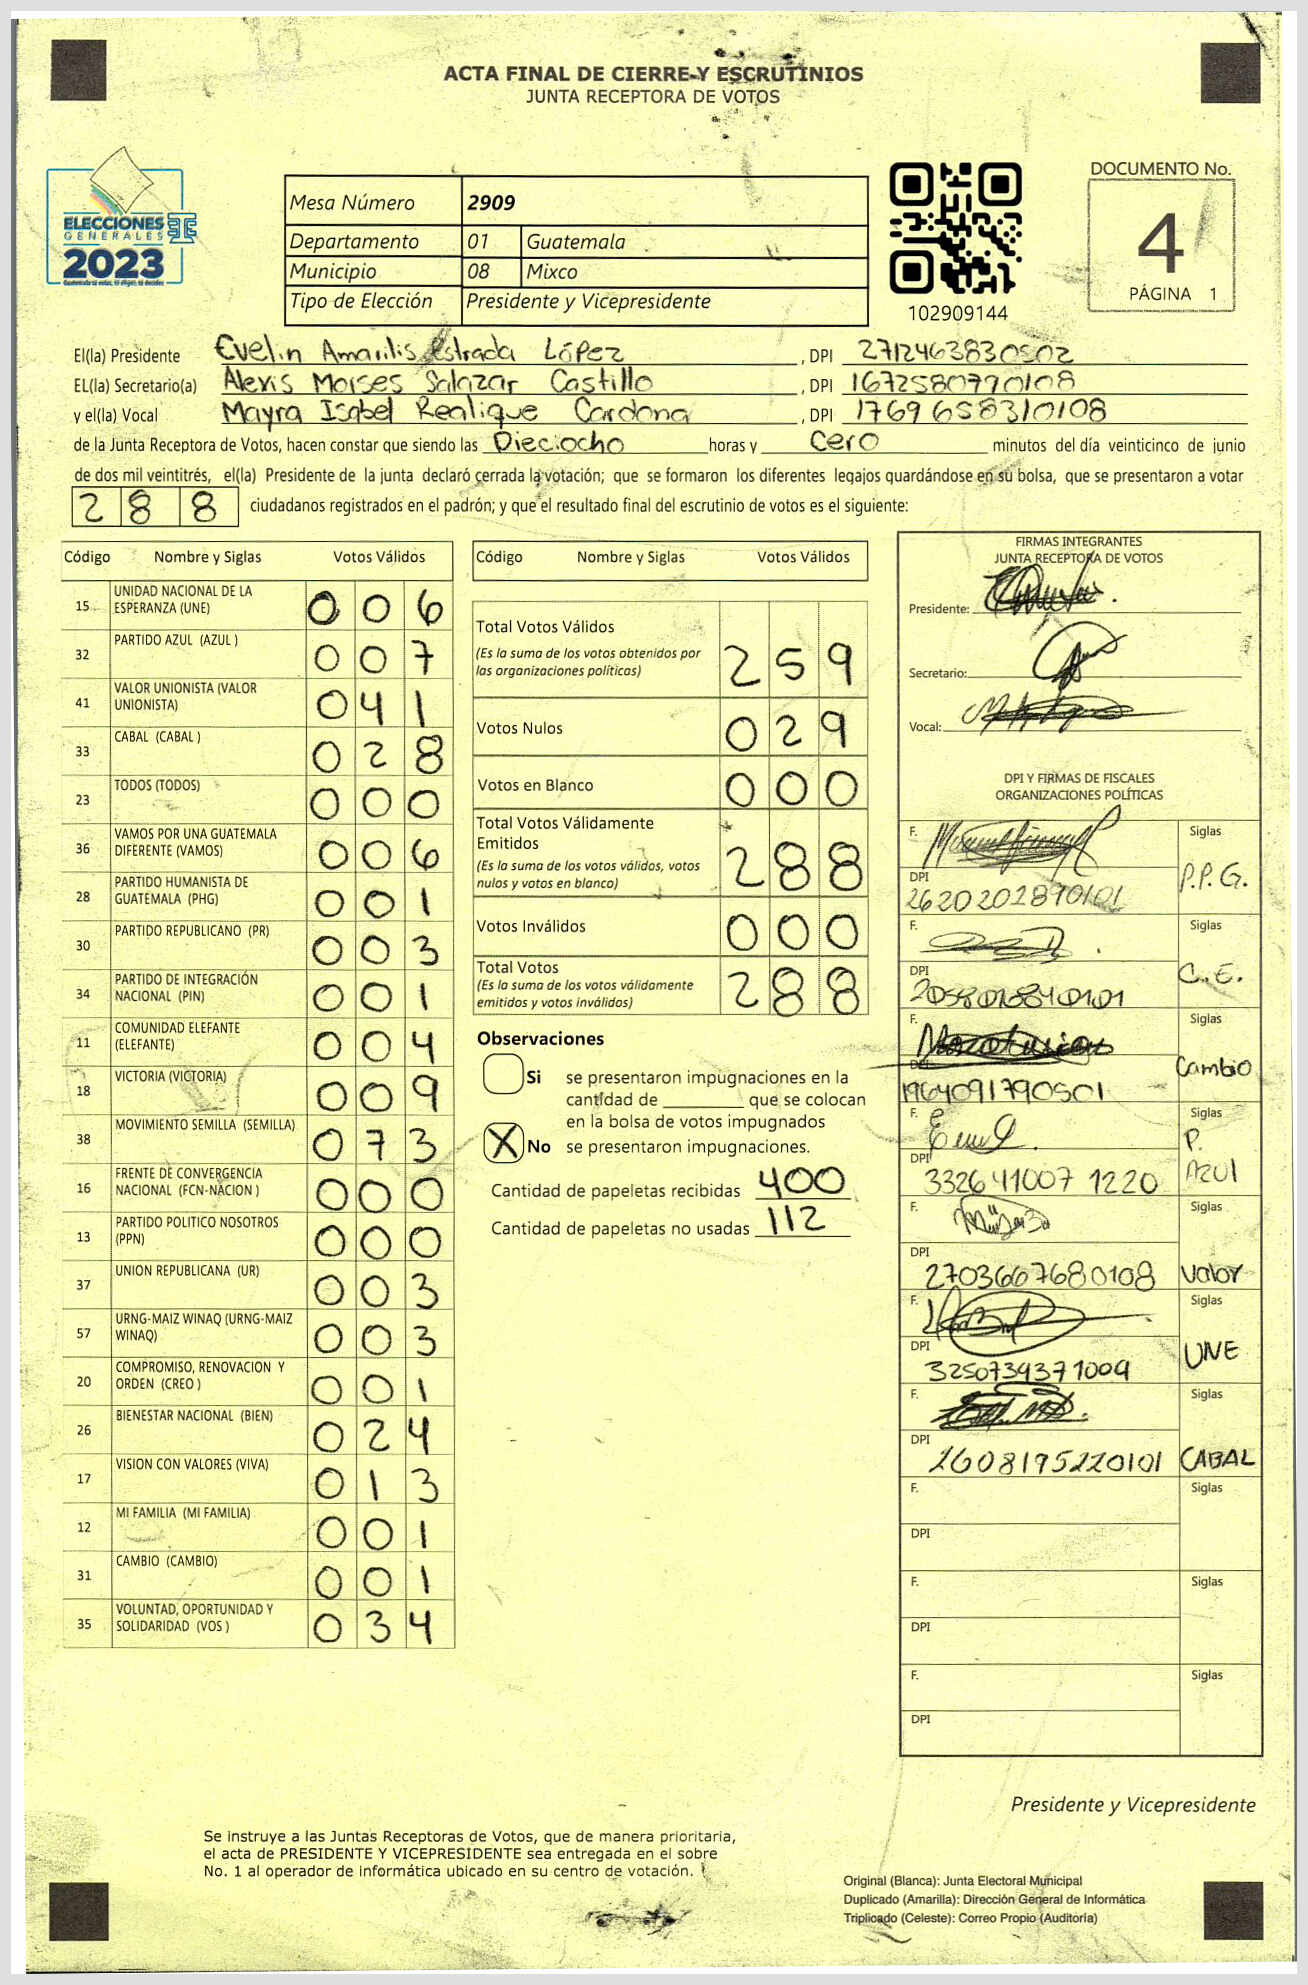 ACTA FINAL DE CIERRE Y ESCRUTINIOS
JUNTA RECEPTORA DE VOTOS
ELECCIONES
GENERALES
2023
Mesa Número 2909
Departamento 01 Guatemala
Municipio 08 Mixco
Tipo de Elección Presidente y Vicepresidente
102909144
DOCUMENTO No.
4
PÁGINA 1
El(la) Presidente Evelin Amarilis Estrada López, DPI 2712463830502
EL(la) Secretario(a) Alexis Moises Salazar Castillo, DPI 1672580790108
y el(la) Vocal Mayra Isabel Realique Cardona, DPI 1769658310108
de la Junta Receptora de Votos, hacen constar que siendo las Dieciocho horas y Cero minutos del día veinticinco de junio
de dos mil veintitrés, el(la) Presidente de la junta declaró cerrada la votación; que se formaron los diferentes legajos guardándose en su bolsa, que se presentaron a votar
288 ciudadanos registrados en el padrón; y que el resultado final del escrutinio de votos es el siguiente:
Código Nombre y Siglas Votos Válidos
15 UNIDAD NACIONAL DE LA
ESPERANZA (UNE) 006
32 PARTIDO AZUL (AZUL ) 007
41 VALOR UNIONISTA (VALOR
UNIONISTA) 041
33 CABAL (CABAL ) 028
23 TODOS (TODOS) 000
36 VAMOS POR UNA GUATEMALA
DIFERENTE (VAMOS) 006
28 PARTIDO HUMANISTA DE
GUATEMALA (PHG) 001
30 PARTIDO REPUBLICANO (PR) 003
34 PARTIDO DE INTEGRACIÓN
NACIONAL (PIN) 001
11 COMUNIDAD ELEFANTE
(ELEFANTE) 004
18 VICTORIA (VICTORIA) 009
38 MOVIMIENTO SEMILLA (SEMILLA) 073
16 FRENTE DE CONVERGENCIA
NACIONAL (FCN-NACION ) 000
13 PARTIDO POLITICO NOSOTROS
(PPN) 000
37 UNION REPUBLICANA (UR) 003
57 URNG-MAIZ WINAQ (URNG-MAIZ
WINAQ) 003
20 COMPROMISO, RENOVACION Y
ORDEN (CREO ) 001
26 BIENESTAR NACIONAL (BIEN) 024
17 VISION CON VALORES (VIVA) 013
12 MI FAMILIA (MI FAMILIA) 001
31 CAMBIO (CAMBIO) 001
35 VOLUNTAD, OPORTUNIDAD Y
SOLIDARIDAD (VOS ) 034
Código Nombre y Siglas Votos Válidos
Total Votos Válidos
(Es la suma de los votos obtenidos por
las organizaciones políticas) 259
Votos Nulos 029
Votos en Blanco 000
Total Votos Válidamente
Emitidos
(Es la suma de los votos válidos, votos
nulos y votos en blanco) 288
Votos Inválidos 000
Total Votos
(Es la suma de los votos válidamente
emitidos y votos inválidos) 288
Observaciones
Si se presentaron impugnaciones en la
cantidad de ________ que se colocan
en la bolsa de votos impugnados
X No se presentaron impugnaciones.
Cantidad de papeletas recibidas 400
Cantidad de papeletas no usadas 112
FIRMAS INTEGRANTES
JUNTA RECEPTORA DE VOTOS
Presidente:
Secretario:
Vocal:
DPI Y FIRMAS DE FISCALES
ORGANIZACIONES POLÍTICAS
F. Siglas
DPI P.P.G.
2620202890101
F. Siglas
DPI C.E.
2058018840101
F. Siglas
DPI Cambio
1964091790501
F. Siglas
P.
DPI AZUl
3326410071220
F. Siglas
DPI
2703667680108 Valor
F. Siglas
DPI UNE
3250739371009
F. Siglas
DPI
2608195220101 CABAL
F. Siglas
DPI
F. Siglas
DPI
F. Siglas
DPI
Presidente y Vicepresidente
Se instruye a las Juntas Receptoras de Votos, que de manera prioritaria,
el acta de PRESIDENTE Y VICEPRESIDENTE sea entregada en el sobre
No. 1 al operador de informática ubicado en su centro de votación.
Original (Blanca): Junta Electoral Municipal
Duplicado (Amarilla): Dirección General de Informática
Triplicado (Celeste): Correo Propio (Auditoría)